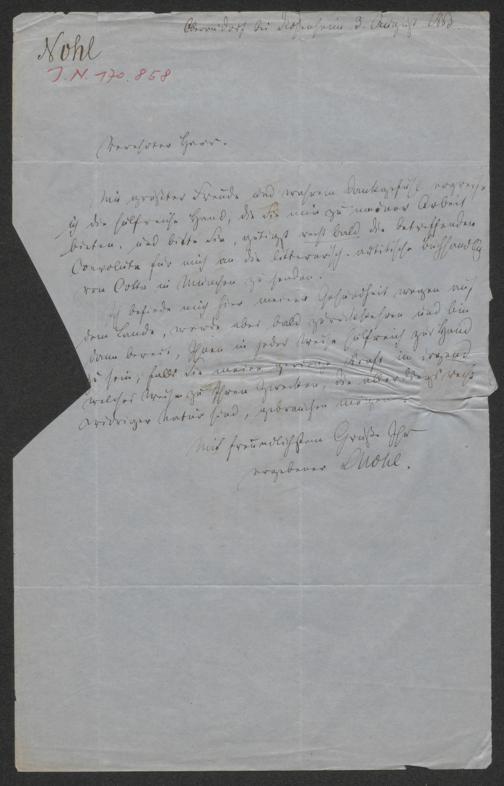 Nohl
J.N. 170.858
Oberndorf bei Rosenheim 3. August 1863
Verehrter Herr.
Mit größter Freude und wahrem Dankgefühl ergreife
ich die hülfreiche Hand, die Sie mir zu meiner Arbeit
bieten, und bitte Sie, gütigst recht bald die betreffenden
Convolute für mich an die litterarisch-artistische Buchhandlg
von Cotta in München zu senden.
Ich befinde mich hier meiner Gesundheit wegen auf
dem Lande, werde aber bald zurückkehren und bin
dann bereit, Ihnen in jeder Weise hülfreich zur Hand
zu sein, falls Sie meine geringe Kraft in irgend
welcher Weise zu Ihren Zwecken, die allerdings recht
Natur sind, gebrauchen mögen.
Mit freundlichstem Gruße Ihr
ergebener LNohl.